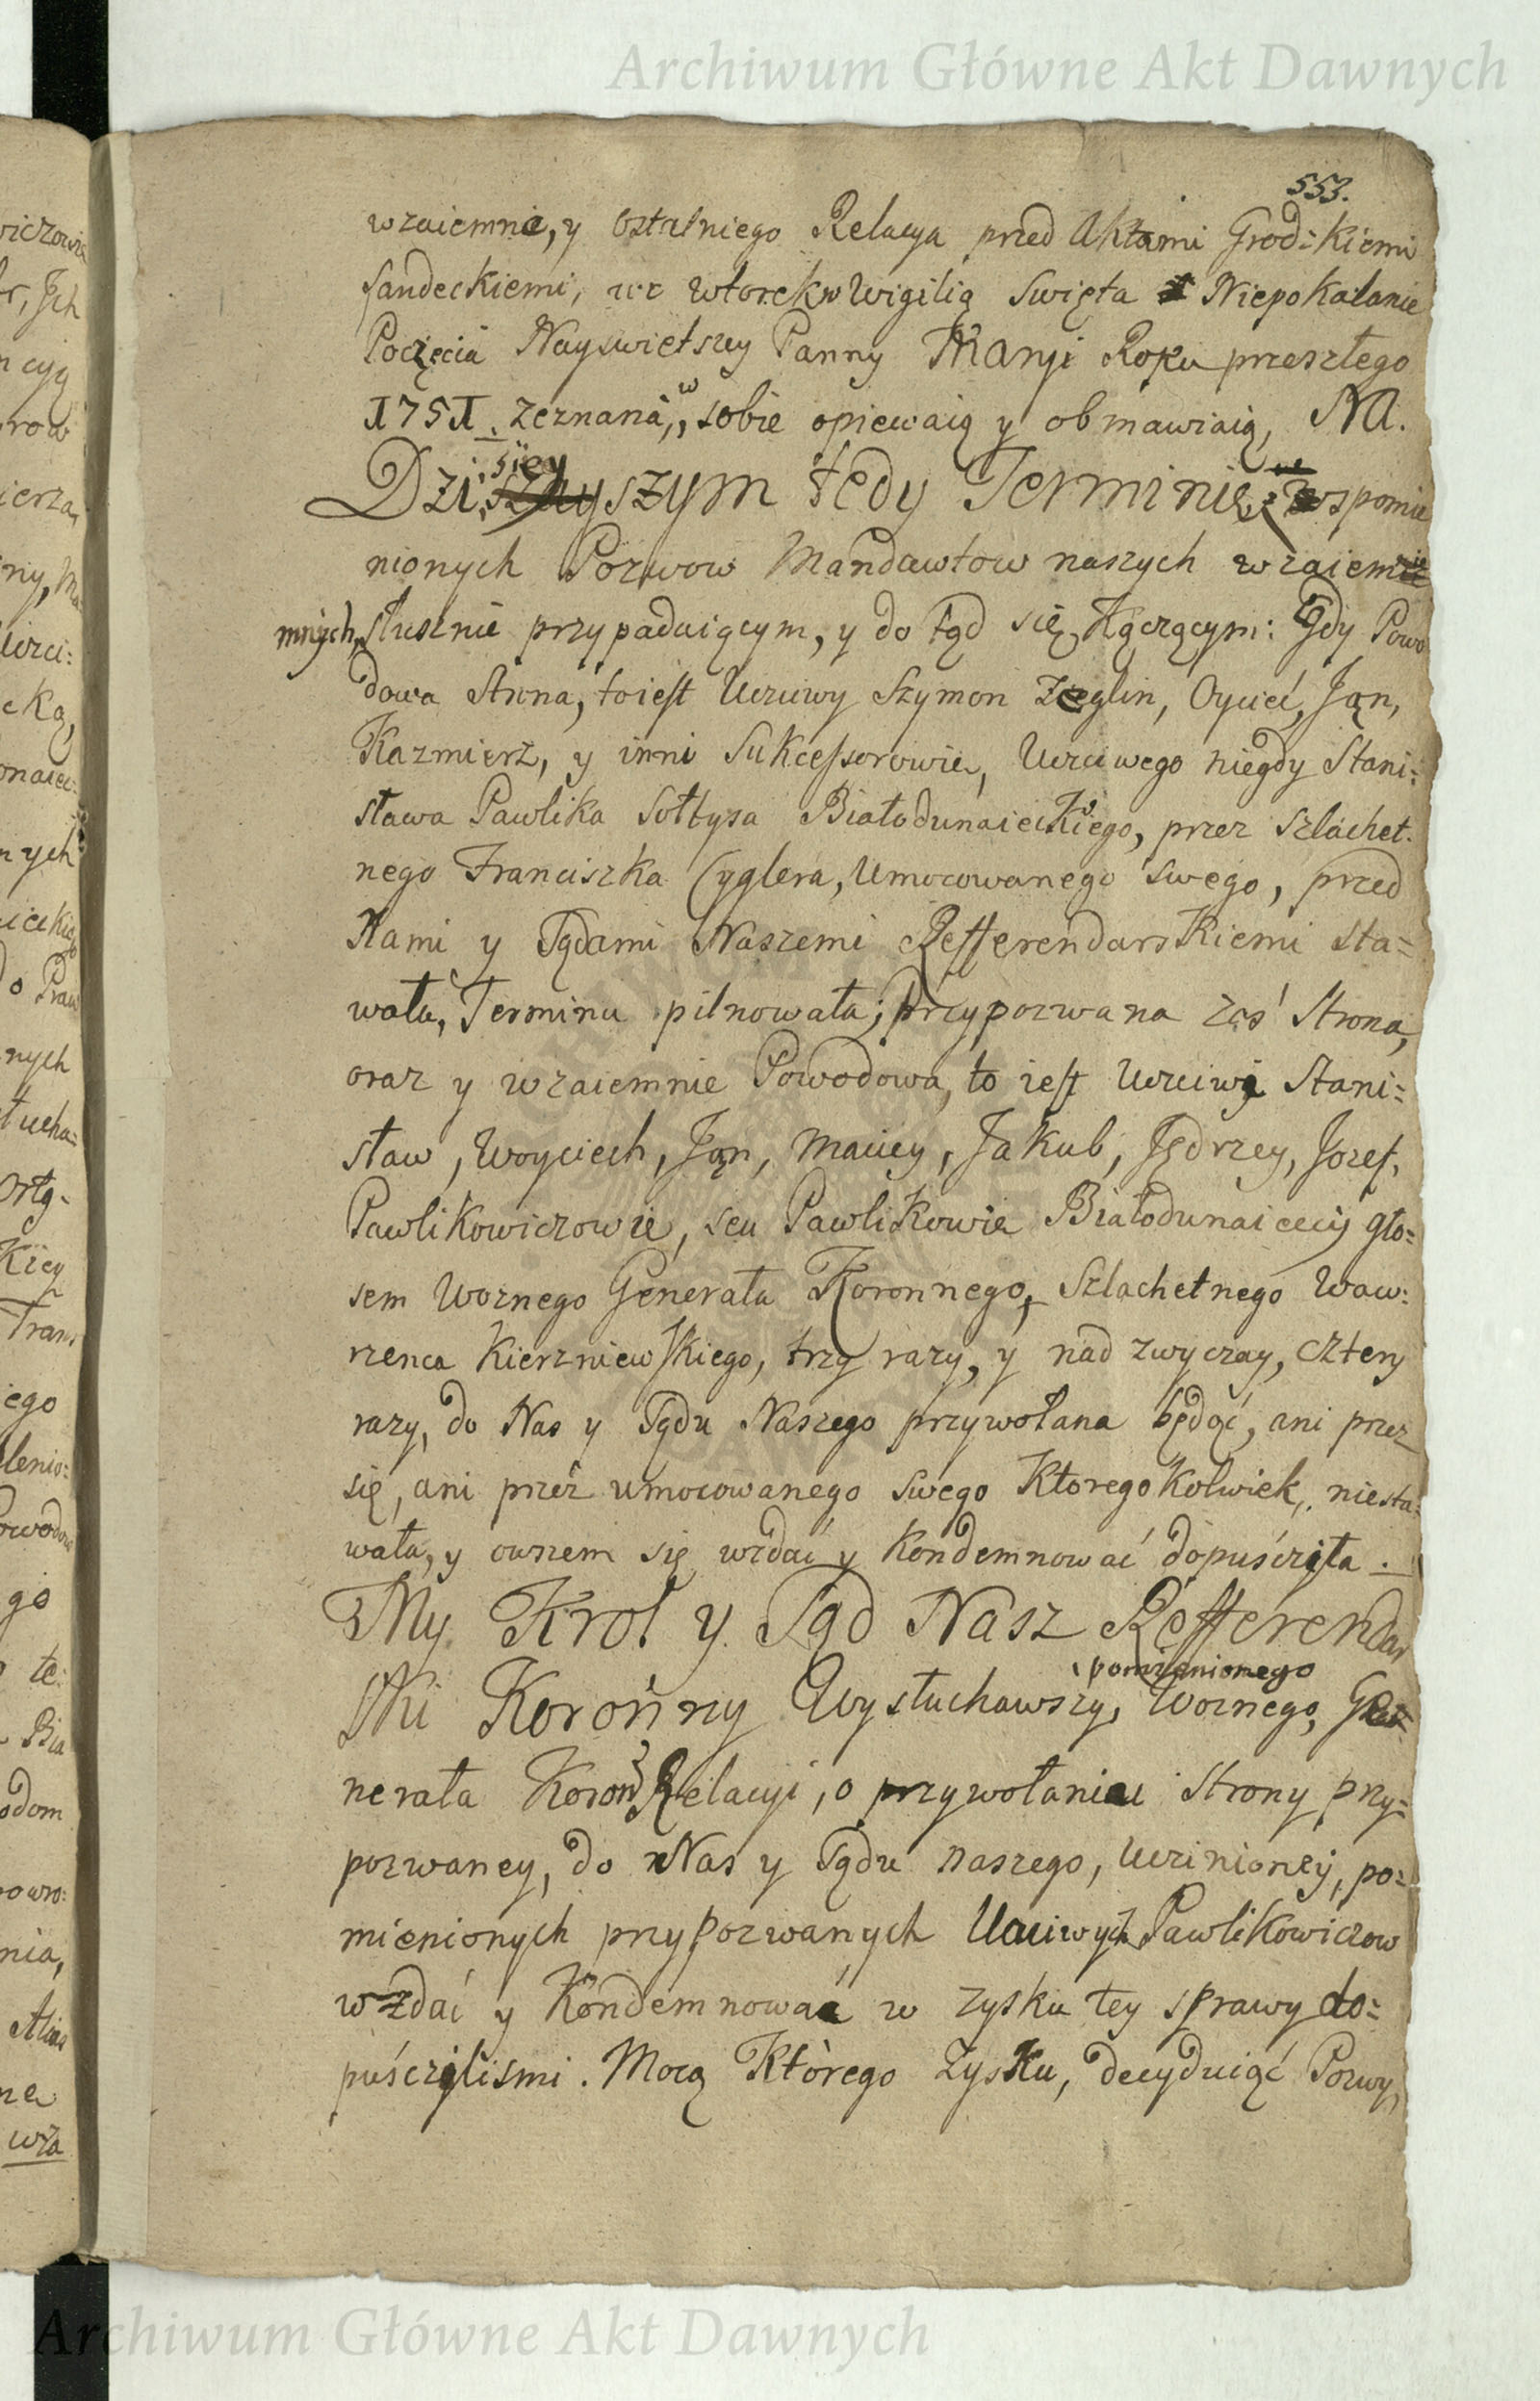 Archiwum Główne Akt Dawnych
553.
wzaiemnie, y ostatniego Relacya przed Aktami Grodzkiemi
Sandeckiemi, we wtorek w Wigilią Swięta Niepokalanie
Poczęcia Nayswiętszey Panny Maryi Roku przeszłego
1751. zeznana, w sobie opiewaią y obmawiaią, Na.
Dzisieyszym tedy Terminie, z wspomie
nionych Pozwow Mandawtow naszych wzaiem
mnych, słusznie przypadaiącym, y do tąd się Łączącym: Gdy Powo
dowa Strona, toiest Uczciwy Szymon Zeglin, Oyciec, Jąn,
Kazmierz, y inni Sukcessorowie, Uczciwego niegdy Stani:
sława Pawlika Sołtysa Białodunaieckiego, przez szlachet.
nego Franciszka Cyglera, Umocowanego swego, przed
Nami y Sądami Naszemi Refferendarskiemi sta=
wała, Terminu pilnowała; Przypozwana zaś Strona,
oraz y wzaiemnie Powodowa, to iest Uczciwi Stani=
sław, Woyciech, Jąn, Maciey, Jakub, Jędrzey, Jozef,
Pawlikowiczowie, seu Pawlikowie Białodunaiecciy gło=
sem Woznego Generała Koronnego, Szlachetnego Waw:
rzenca Kierzniewskiego, trzy razy, y nad zwyczay, cztery
razy, do Nas y Sądu Naszego przywołana będąc, ani przez
się, ani przez umocowanego swego Ktoregokolwiek, niesta=
wała, y owszem się wzdać y Kondemnować dopuściła.
My Krol y Sąd Nasz Refferendar
ski Koronny Wysłuchawszy, pomienionego Woznego, Ge=
nerała Koron Relacyi, o przywołaniu Strony przy=
pozwaney, do Nas y Sądu naszego, Uczinioney, po=
mienionych przypozwanych Uczciwych Pawlikowiczow
wzdać y Kondemnować w zysku tey sprawy do=
puścilismi. Mocą Ktòrego Zysku, decyduiąc Pozwy,
Archiwum Główne Akt Dawnych